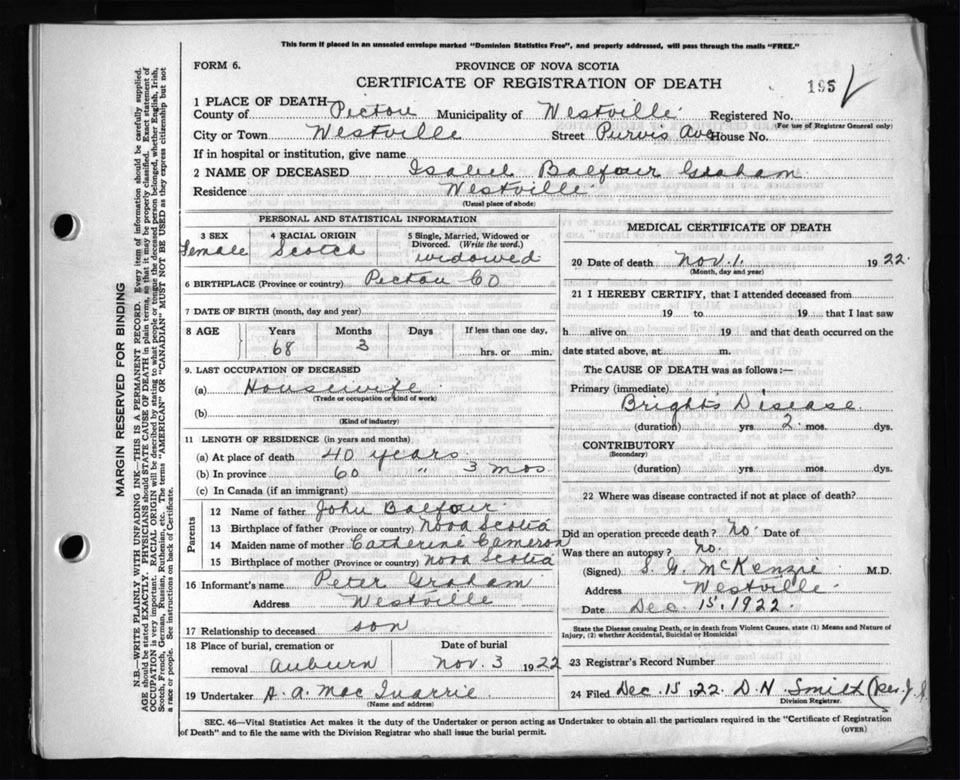 This form if placed in an unsealed envelope marked "Dominion Statistics Free", and properly addressed, will pass through the mails "FREE."
FORM 6.
PROVINCE OF NOVA SCOTIA
CERTIFICATE OF REGISTRATION OF DEATH
195
1 PLACE OF DEATH—
County of Pictou Municipality of Westville Registered No.
(For use of Registrar General only)
City or Town Westville Street Purvis Ave House No.
If in hospital or institution, give name
2 NAME OF DECEASED Isabel Balfour Graham
Residence Westville
(Usual place of abode)
PERSONAL AND STATISTICAL INFORMATION
3 SEX 4 RACIAL ORIGIN 5 Single, Married, Widowed or Divorced. (Write the word.)
Female Scotch widowed
6 BIRTHPLACE (Province or country) Pictou Co
7 DATE OF BIRTH (month, day and year)
8 AGE Years Months Days If less than one day,
68 3 hrs. or min.
9. LAST OCCUPATION OF DECEASED
(a) Housewife
(Trade or occupation or kind of work)
(b)
(Kind of industry)
11 LENGTH OF RESIDENCE (in years and months)
(a) At place of death 40 years
(b) In province 60 " 3 mos
(c) In Canada (if an immigrant)
Parents
12 Name of father John Balfour
13 Birthplace of father (Province or country) Nova Scotia
14 Maiden name of mother Catherine Cameron
15 Birthplace of mother (Province or country) Nova Scotia
16 Informant's name Peter Graham
Address Westville
17 Relationship to deceased son
18 Place of burial, cremation or removal Auburn Date of burial Nov. 3 1922
19 Undertaker A. A. Mac Quarrie
(Name and address)
MEDICAL CERTIFICATE OF DEATH
20 Date of death Nov. 1. 1922.
(Month, day and year)
21 I HEREBY CERTIFY, that I attended deceased from
19 to 19 that I last saw
h alive on 19 and that death occurred on the
date stated above, at m.
The CAUSE OF DEATH was as follows:—
Primary (immediate)
Bright's Disease
(duration) yrs. 2 mos. dys.
CONTRIBUTORY
(Secondary)
(duration) yrs. mos. dys.
22 Where was disease contracted if not at place of death?
Did an operation precede death? no. Date of
Was there an autopsy? no.
(Signed) S. G. McKenzie M.D.
Address Westville
Date Dec. 15, 1922.
State the Disease causing Death, or in death from Violent Causes, state (1) Means and Nature of
Injury, (2) whether Accidental, Suicidal or Homicidal
23 Registrar's Record Number
24 Filed Dec. 15 1922. D. N. Smith (per J.
Division Registrar.
SEC. 46—Vital Statistics Act makes it the duty of the Undertaker or person acting as Undertaker to obtain all the particulars required in the "Certificate of Registration
of Death" and to file the same with the Division Registrar who shall issue the burial permit.
(OVER)
MARGIN RESERVED FOR BINDING
N.B.—WRITE PLAINLY WITH UNFADING INK—THIS IS A PERMANENT RECORD. Every item of information should be carefully supplied.
AGE should be stated EXACTLY. PHYSICIANS should STATE CAUSE OF DEATH in plain terms, so that it may be properly classified. Exact statement of
OCCUPATION is very important. RACIAL ORIGIN will be described by stating to what people or tongue the deceased person belonged, whether English, Irish,
Scotch, French, German, Russian, Ruthenian, etc. The terms "AMERICAN" OR "CANADIAN" MUST NOT BE USED as they express citizenship but not
a race or people. See instructions on back of Certificate.